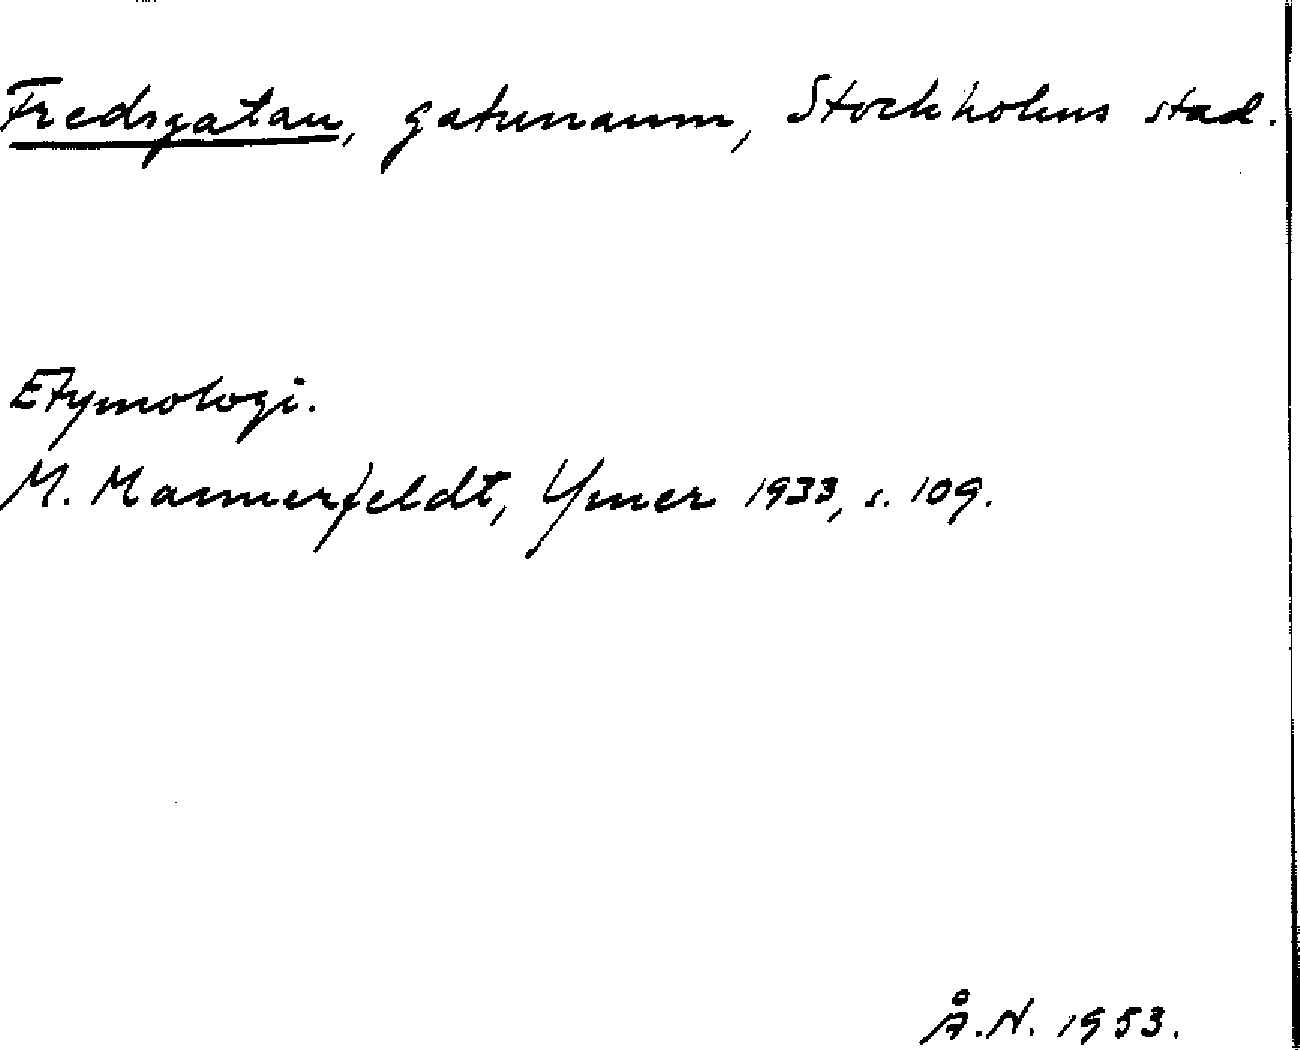 Fredsgatan, gatunamn, Stockholms stad.
Etymologi.
M. Mannerfeldt, Ymer 1933, s. 109.
Å.N. 1953.